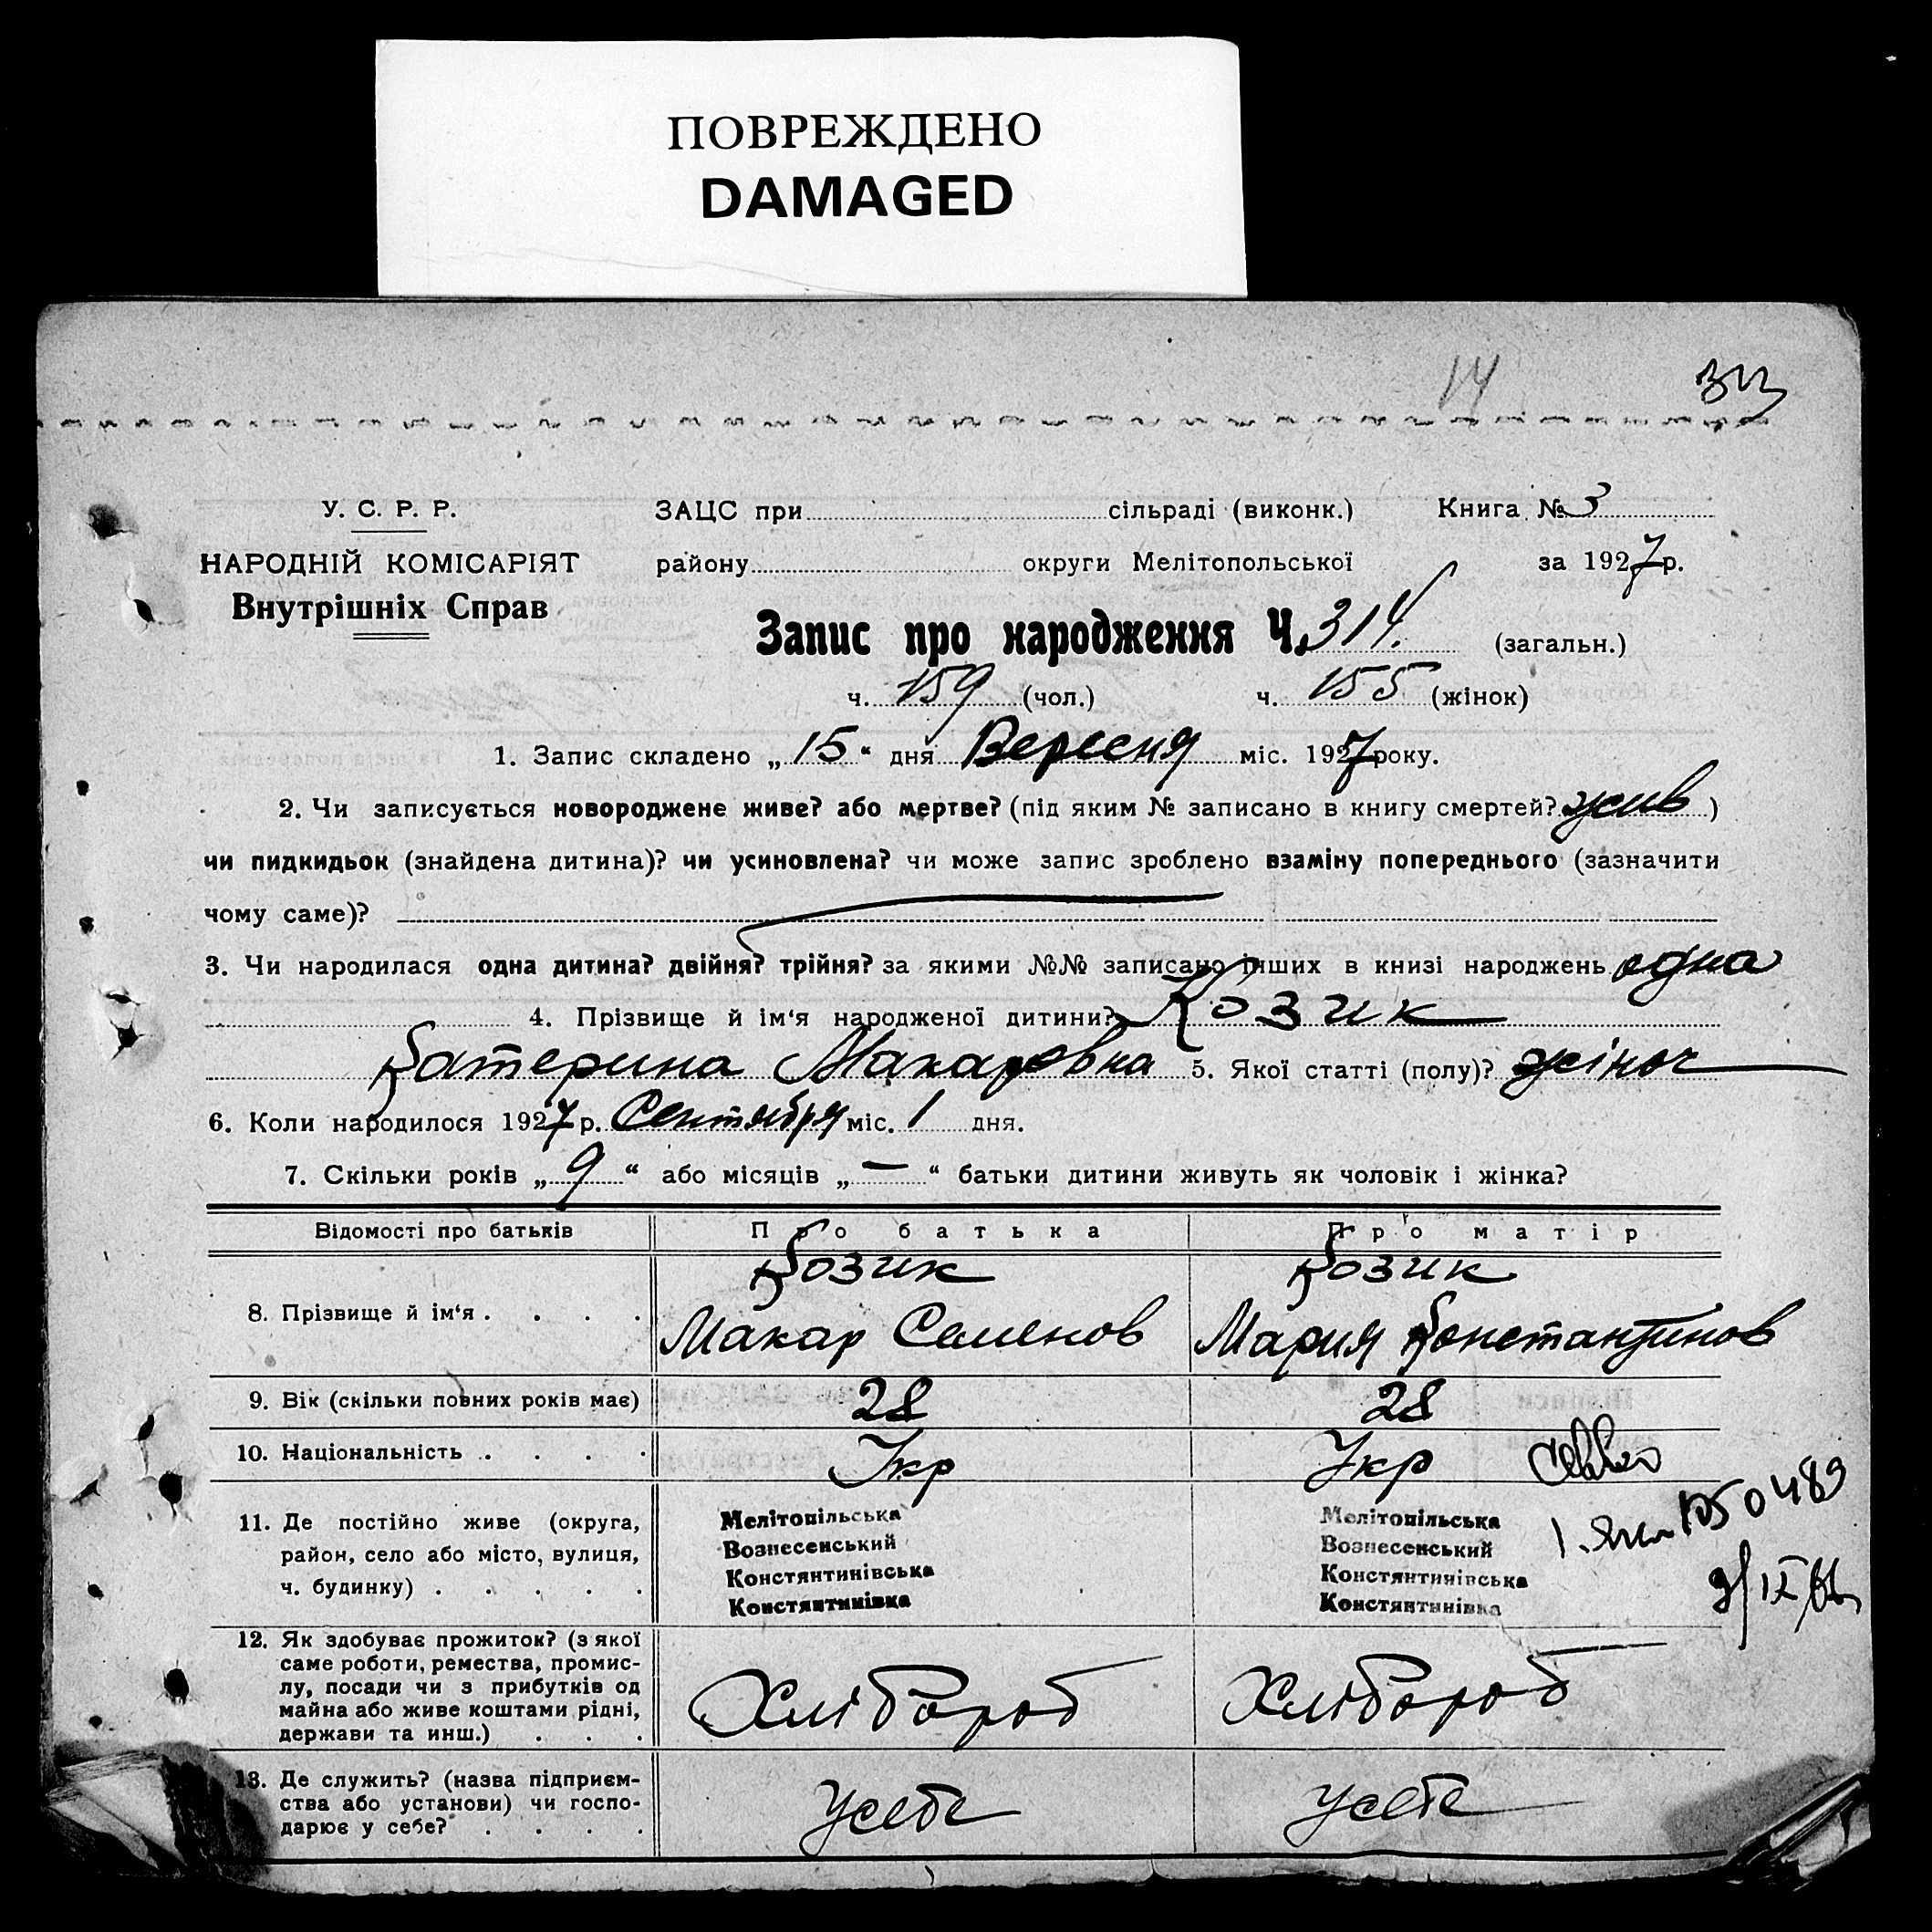 ПОВРЕЖДЕНО
DAMAGED
14
313
У. С. Р. Р.
ЗАЦС при сільраді (виконк.) Книга № 3
НАРОДНІЙ КОМІСАРІЯТ
Внутрішніх Справ
району округи Мелітопольської за 1927 р.
Запис про народження Ч. 314. (загальн.)
ч. 159 (чол.) ч. 155 (жінок)
1. Запис складено „ 15 “ дня Вересня міс. 1927 року.
2. Чи записується новороджене живе? або мертве? (під яким № записано в книгу смертей? жив )
чи пидкидьок (знайдена дитина)? чи усиновлена? чи може запис зроблено взаміну попереднього (зазначити
чому саме)?
3. Чи народилася одна дитина? двійня? трійня? за якими №№ записано інших в книзі народжень одна
4. Прізвище й ім‘я народженої дитини? Козик
Катерина Макаровна 5. Якої статті (полу)? жіноч
6. Коли народилося 1927 р. Сентября міс. 1 дня.
7. Скільки років „ 9 “ або місяців „ — “ батьки дитини живуть як чоловік і жінка?
Відомості про батьків Про батька Про матір
8. Прізвище й ім‘я . . . . Козик Макар Семенов Козик Мария Константинов
9. Вік (скільки повних років має) 28 28
10. Національність . . . . Укр Укр
11. Де постійно живе (округа,
район, село або місто, вулиця,
ч. будинку) . . . . .
Мелітопільська
Вознесенський
Констянтинівська
Констянтинівка
Мелітопільська
Вознесенський
Констянтинівська
Констянтинівка
0489
12. Як здобуває прожиток? (з якої
саме роботи, ремества, промис-
лу, посади чи з прибутків од
майна або живе коштами рідні,
держави та инш.) . . .
Хлібороб Хлібороб
13. Де служить? (назва підприєм-
ства або установи) чи госпо-
дарює у себе? . . . .
Усебе Усебе